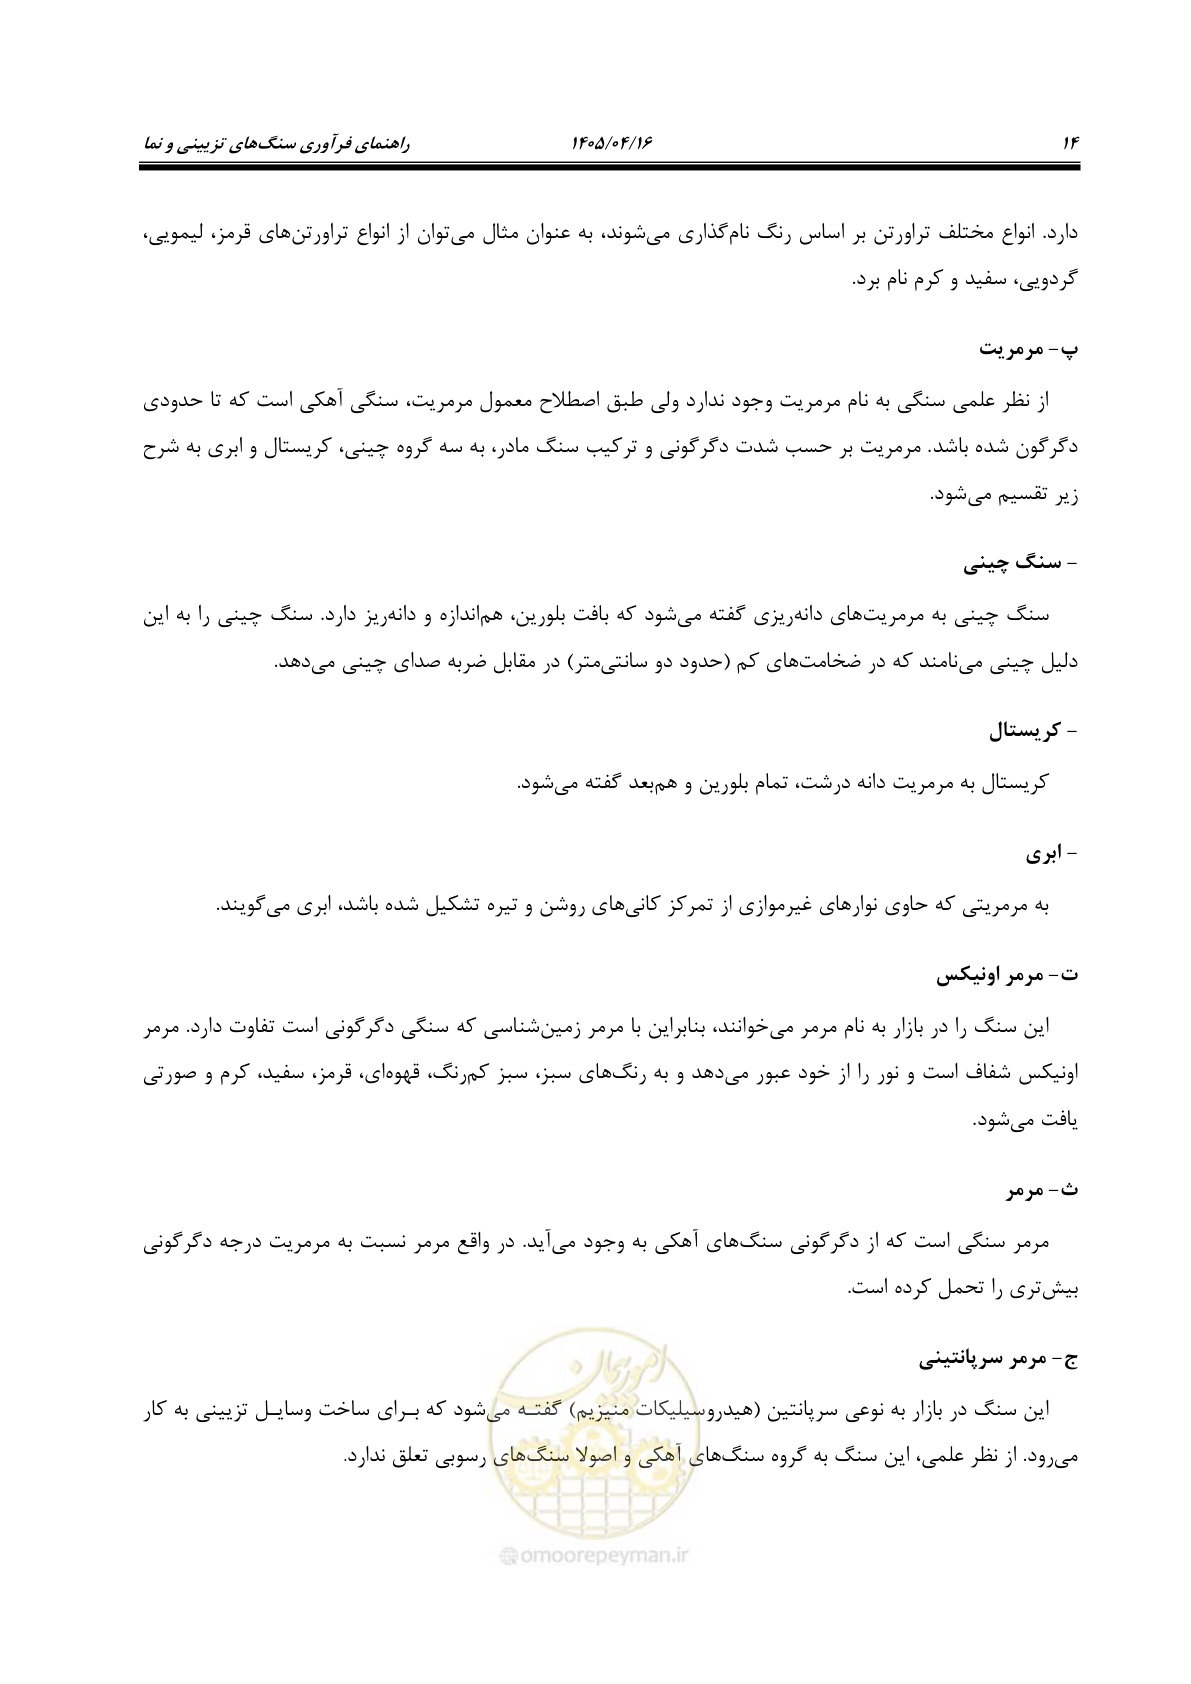 ۱۴
۱۴۰۵/۰۴/۱۶
راهنمای فرآوری سنگ‌های تزیینی و نما
دارد. انواع مختلف تراورتن بر اساس رنگ نام‌گذاری می‌شوند، به عنوان مثال می‌توان از انواع تراورتن‌های قرمز، لیمویی،
گردویی، سفید و کرم نام برد.
پ- مرمریت
از نظر علمی سنگی به نام مرمریت وجود ندارد ولی طبق اصطلاح معمول مرمریت، سنگی آهکی است که تا حدودی
دگرگون شده باشد. مرمریت بر حسب شدت دگرگونی و ترکیب سنگ مادر، به سه گروه چینی، کریستال و ابری به شرح
زیر تقسیم می‌شود.
- سنگ چینی
سنگ چینی به مرمریت‌های دانه‌ریزی گفته می‌شود که بافت بلورین، هم‌اندازه و دانه‌ریز دارد. سنگ چینی را به این
دلیل چینی می‌نامند که در ضخامت‌های کم (حدود دو سانتی‌متر) در مقابل ضربه صدای چینی می‌دهد.
- کریستال
کریستال به مرمریت دانه درشت، تمام بلورین و هم‌بعد گفته می‌شود.
- ابری
به مرمریتی که حاوی نوارهای غیرموازی از تمرکز کانی‌های روشن و تیره تشکیل شده باشد، ابری می‌گویند.
ت- مرمر اونیکس
این سنگ را در بازار به نام مرمر می‌خوانند، بنابراین با مرمر زمین‌شناسی که سنگی دگرگونی است تفاوت دارد. مرمر
اونیکس شفاف است و نور را از خود عبور می‌دهد و به رنگ‌های سبز، سبز کم‌رنگ، قهوه‌ای، قرمز، سفید، کرم و صورتی
یافت می‌شود.
ث- مرمر
مرمر سنگی است که از دگرگونی سنگ‌های آهکی به وجود می‌آید. در واقع مرمر نسبت به مرمریت درجه دگرگونی
بیش‌تری را تحمل کرده است.
ج- مرمر سرپانتینی
این سنگ در بازار به نوعی سرپانتین (هیدروسیلیکات منیزیم) گفتـه می‌شود که بـرای ساخت وسایـل تزیینی به کار
می‌رود. از نظر علمی، این سنگ به گروه سنگ‌های آهکی و اصولا سنگ‌های رسوبی تعلق ندارد.
امور پیمان
@omoorepeyman.ir